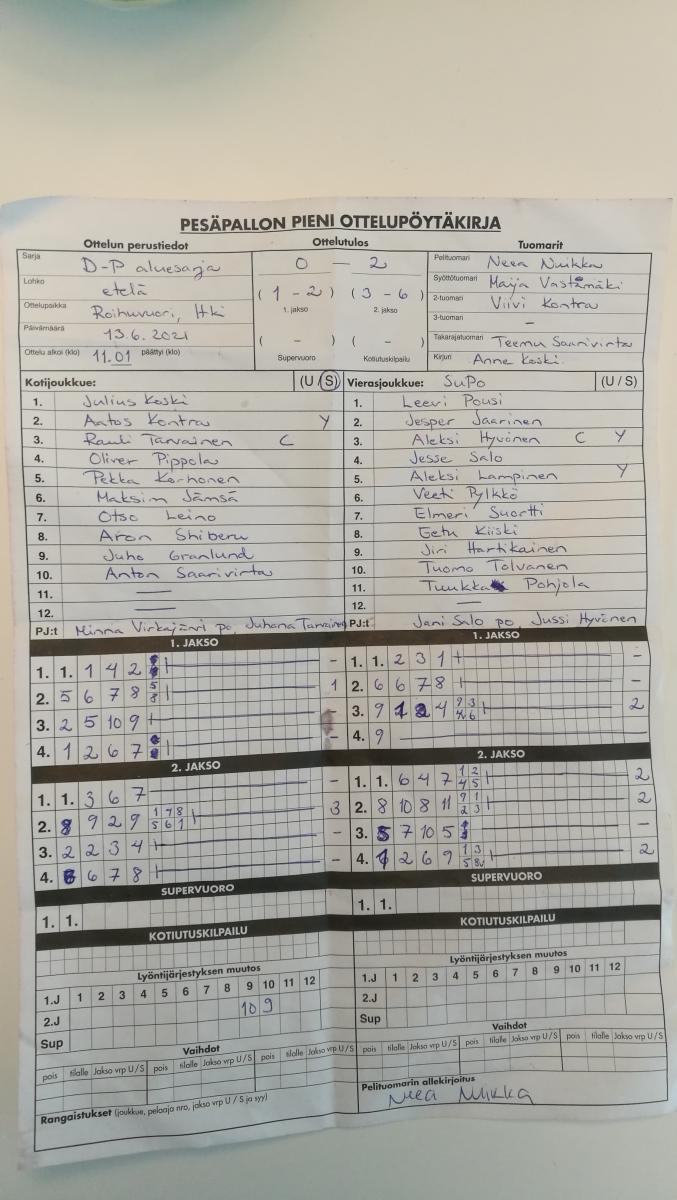 PESÄPALLON PIENI OTTELUPÖYTÄKIRJA
Ottelun perustiedot Ottelutulos Tuomarit
Sarja D-P aluesarja
Lohko etelä
Ottelupaikka Roihuvuori, Hki
Päivämäärä 13.6.2021
Ottelu alkoi (klo) 11.01 päättyi (klo)
0 — 2
(1-2) (3-6)
1. jakso 2. jakso
( - ) ( - )
Supervuoro Kotiutuskilpailu
Pelituomari Neea Nuikka
Syöttötuomari Maija Vastamäki
2-tuomari Viivi Kontra
3-tuomari –
Takarajatuomari Teemu Saarivirta
Kirjuri Anne Koski
Kotijoukkue: (U/S)
1. Julius Koski
2. Aatos Kontra Y
3. Rauli Tarvainen C
4. Oliver Pippola
5. Pekka Korhonen
6. Maksim Jämsä
7. Otso Leino
8. Aron Shiberu
9. Juho Granlund
10. Anton Saarivirta
11. —
12. —
PJ:t Minna Virkajärvi po, Juhana Tarvainen
Vierasjoukkue: SuPo (U/S)
1. Leevi Pousi
2. Jesper Saarinen
3. Aleksi Hyvönen C Y
4. Jesse Salo
5. Aleksi Lampinen Y
6. Veeti Pylkkö
7. Elmeri Suortti
8. Eetu Kiiski
9. Jiri Hartikainen
10. Tuomo Tolvanen
11. Tuukka Pohjola
12. —
PJ:t Jani Salo po, Jussi Hyvönen
1. JAKSO
1. 1. 1 4 2 –
2. 5 6 7 8 5 8 1
3. 2 5 10 9 –
4. 1 2 6 7 –
2. JAKSO
1. 1. 3 6 7 –
2. 8 9 2 9 1 7 8 5 6 1 3
3. 2 2 3 4 –
4. 6 6 7 8 –
SUPERVUORO
1. 1.
KOTIUTUSKILPAILU
1. JAKSO
1. 1. 2 3 1 –
2. 6 6 7 8 –
3. 9 1 2 4 9 3 4 6 2
4. 9
2. JAKSO
1. 1. 6 4 7 1 2 4 5 2
2. 8 10 8 11 9 1 2 3 2
3. 5 7 10 5 –
4. 1 2 6 9 1 3 5 8 2
SUPERVUORO
1. 1.
KOTIUTUSKILPAILU
Lyöntijärjestyksen muutos
1.J 1 2 3 4 5 6 7 8 9 10 11 12
2.J 10 9
Sup
Vaihdot
pois tilalle Jakso vrp U/S pois tilalle Jakso vrp U/S pois tilalle Jakso vrp U/S
Rangaistukset (joukkue, pelaaja nro, jakso vrp U / S ja syy)
Lyöntijärjestyksen muutos
1.J 1 2 3 4 5 6 7 8 9 10 11 12
2.J
Sup
Vaihdot
pois tilalle Jakso vrp U/S pois tilalle Jakso vrp U/S pois tilalle Jakso vrp U/S
Pelituomarin allekirjoitus
Neea Nuikka